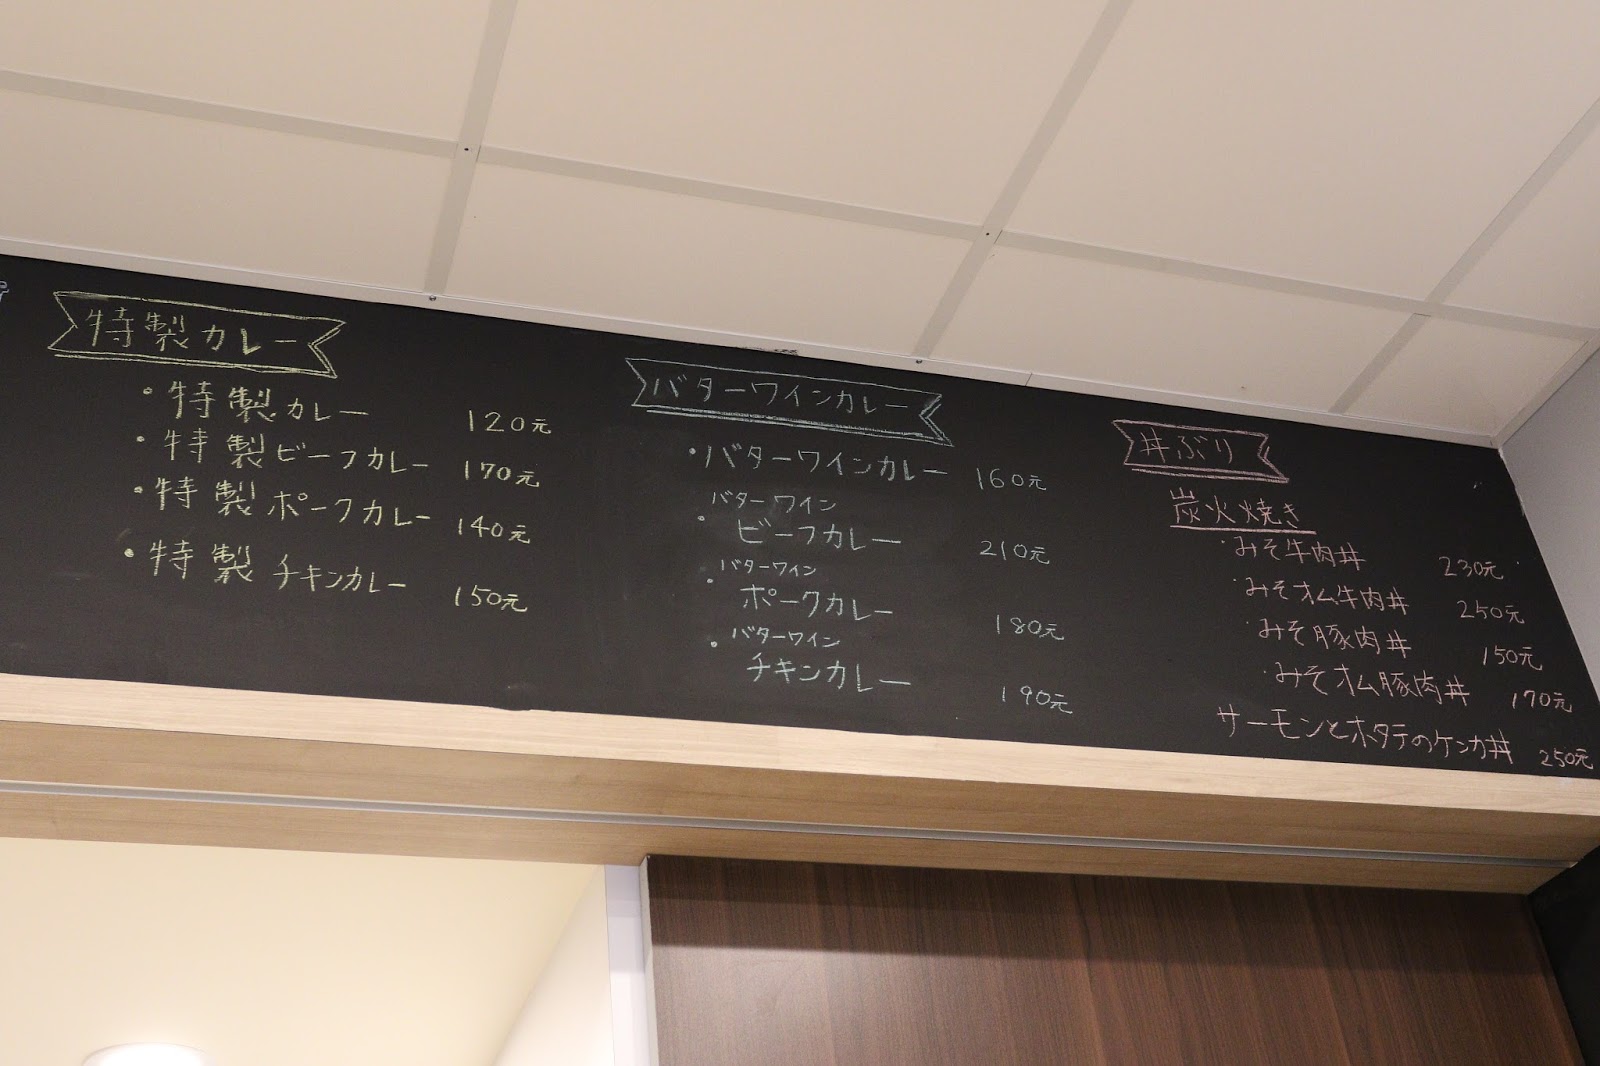 特製カレー
・特製カレー 120元
・特製ビーフカレー 170元
・特製ポークカレー 140元
・特製チキンカレー 150元
バターワインカレー
・バターワインカレー 160元
バターワイン
・ビーフカレー 210元
バターワイン
・ポークカレー 180元
バターワイン
・チキンカレー 190元
丼ぶり
炭火焼き
・みそ牛肉丼 230元
・みそオム牛肉丼 250元
・みそ豚肉丼 150元
・みそオム豚肉丼 170元
サーモンとホタテのケンカ丼 250元